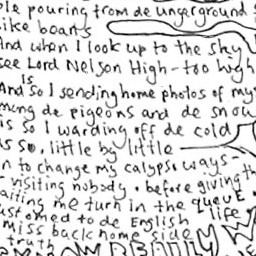 ple pouring from de ungerground
like beans
And when I look up to the sky
see Lord Nelson High-too high
And Is So I sending home photos of my
mung de pigeons and de snow
is so I warding off de cold
is So, little by little
n to change my calypso ways-
visiting nobody. before giving th
aiting me turn in the queue.
ustomed to de English life
miss back home side
truth
REALLY